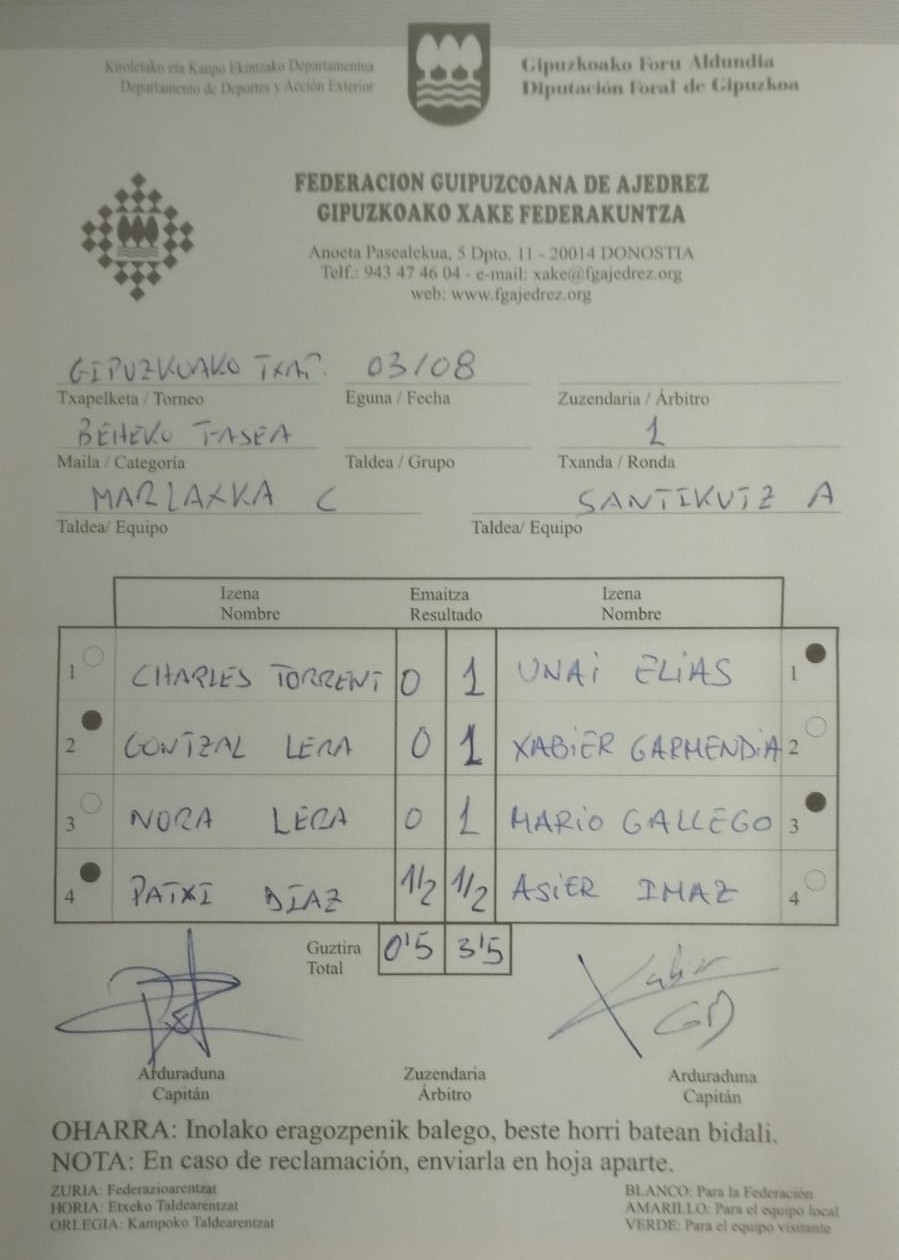 Kiroletako eta Kanpo Ekintzako Departamentua
Departamento de Deportes y Acción Exterior
Gipuzkoako Foru Aldundia
Diputación Foral de Gipuzkoa
FEDERACION GUIPUZCOANA DE AJEDREZ
GIPUZKOAKO XAKE FEDERAKUNTZA
Anoeta Pasealekua, 5 Dpto. 11 - 20014 DONOSTIA
Telf.: 943 47 46 04 - e-mail: xake@fgajedrez.org
web: www.fgajedrez.org
GIPUZKOAKO TXAP. 03/08
Txapelketa / Torneo Eguna / Fecha Zuzendaria / Árbitro
BEHEKO FASEA 1
Maila / Categoria Taldea / Grupo Txanda / Ronda
MARLAXKA C SANTIKUTZ A
Taldea/ Equipo Taldea/ Equipo
Izena Emaitza Izena
Nombre Resultado Nombre
1 CHARLES TORRENT 0 1 UNAI ELIAS 1
2 GONTZAL LERA 0 1 XABIER GARMENDIA 2
3 NORA LERA 0 1 MARIO GALLEGO 3
4 PATXI DIAZ 1/2 1/2 ASIER IMAZ 4
Guztira
Total 0'5 3'5
Xabier
GD
Arduraduna Zuzendaria Arduraduna
Capitán Árbitro Capitán
OHARRA: Inolako eragozpenik balego, beste horri batean bidali.
NOTA: En caso de reclamación, enviarla en hoja aparte.
ZURIA: Federazioarentzat BLANCO: Para la Federación
HORIA: Etxeko Taldearentzat AMARILLO: Para el equipo local
ORLEGIA: Kampoko Taldearentzat VERDE: Para el equipo visitante